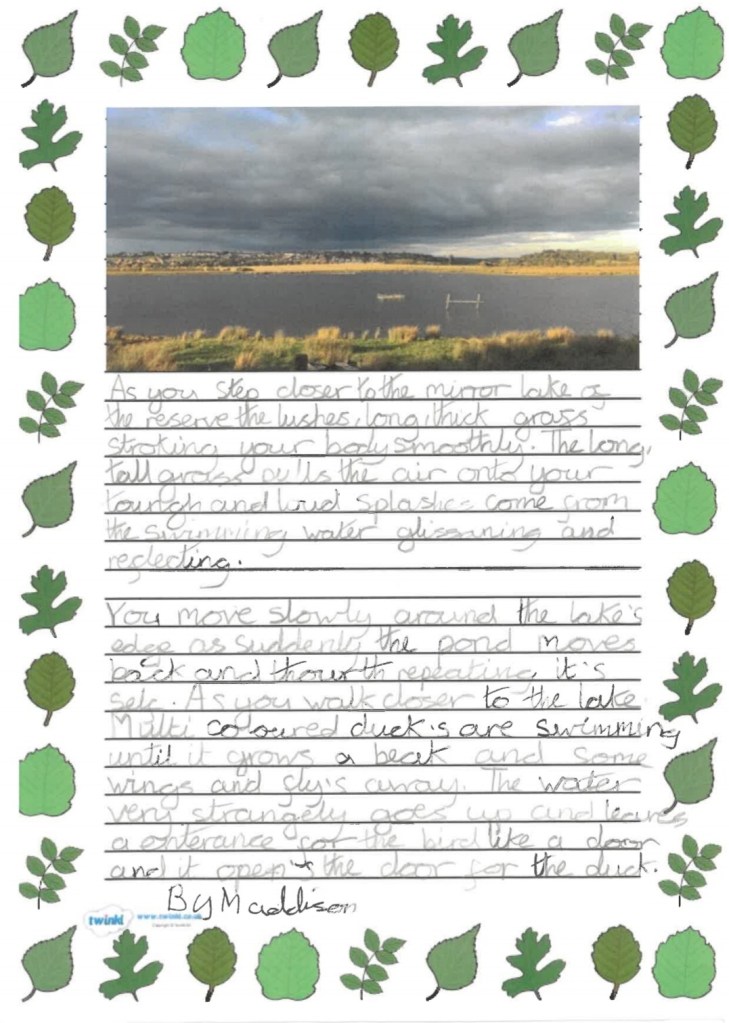 As you step closer to the mirror lake of
the reserve the lushes, long, thick grass
stroking your body smoothly. The long,
tall grass the air onto your
toungh and loud splashes come from
the swimming water glissaning and
reflecting.
You move slowly around the lake's
edge as suddenly the pond moves
back and thourth repeating it's
self. As you walk closer to the lake.
Multi coloured duck's are swimming
until it grows a beak and some
wings and fly's away. The water
very strangely goes up and leaves
a enterance for the bird like a door
and it open's the door for the duck.
By Maddison
twinkl www.twinkl.co.uk